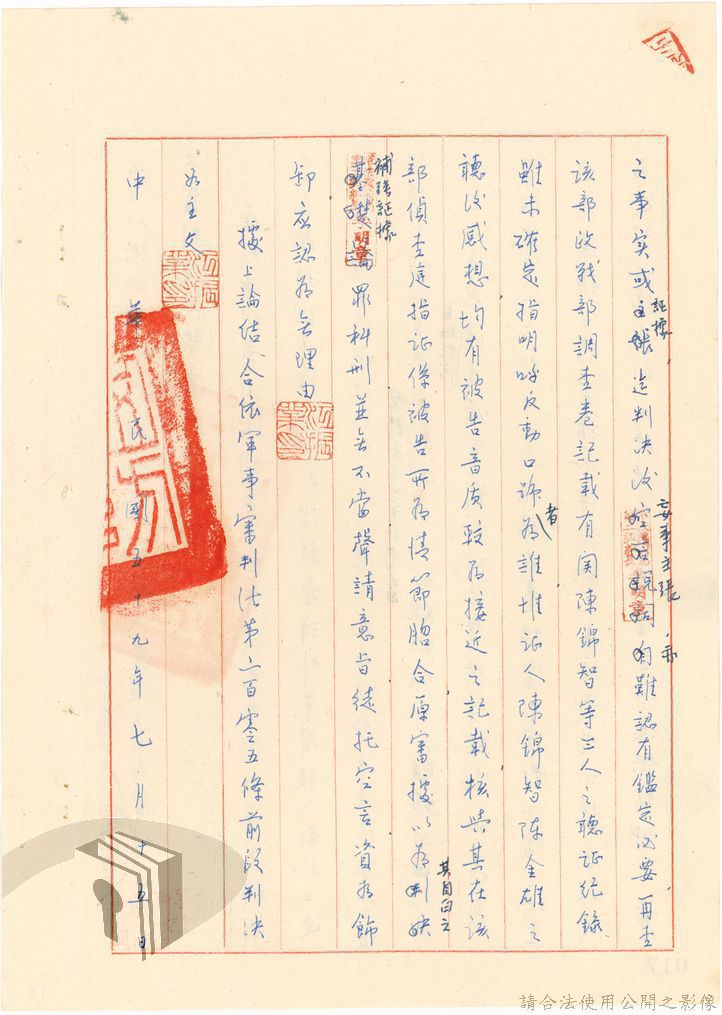 之事实或証據迨判決後妄事主張亦自難認有鑑定必要再查
該部政戰部調查卷記載有関陳錦智等三人之聽証紀錄
雖未確定指明呼反動口號者為誰惟証人陳錦智陳金雄之
聽後感想均有被告音质較為接近之記載核與其在該
部偵查庭指証係被告所為情節脗合原審據以為其自白之
補強証據論罪科刑並無不當聲請意旨徒托空言資為飾
卸应認為無理由
據上論結合依軍事審判法第二百零五條前段判決
如主文
中華民國五十九年七月十五日
017
請合法使用公開之影像